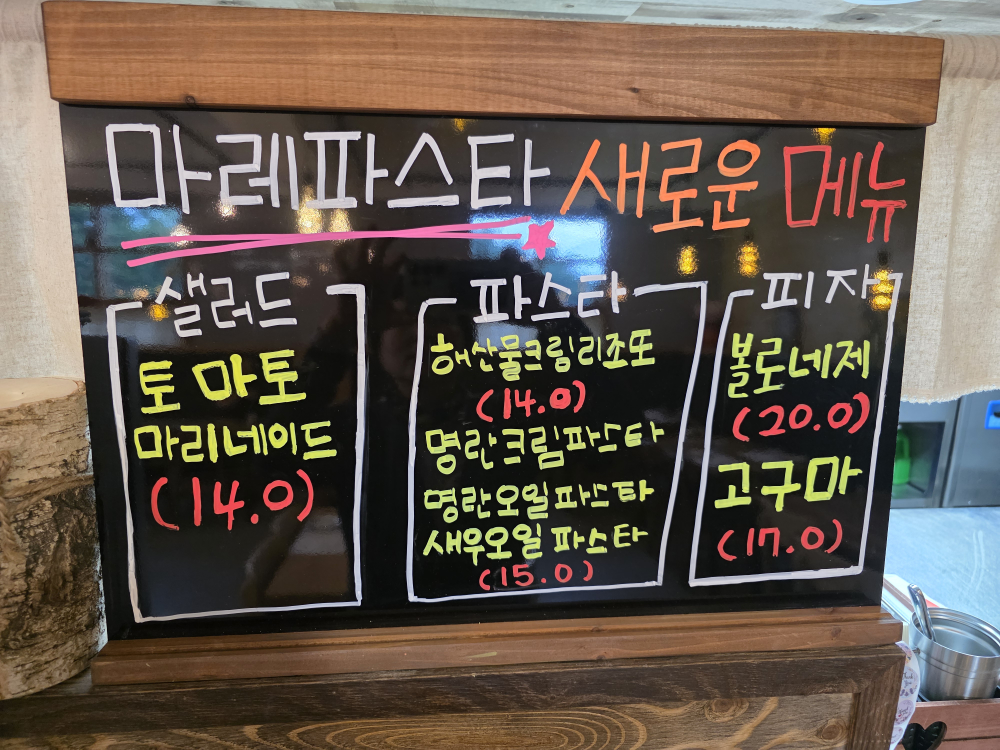 마레파스타 새로운 메뉴
샐러드
토마토
마리네이드
(14.0)
파스타
해산물크림리조또
(14.0)
명란크림파스타
명란오일파스타
새우오일파스타
(15.0)
피자
볼로네제
(20.0)
고구마
(17.0)